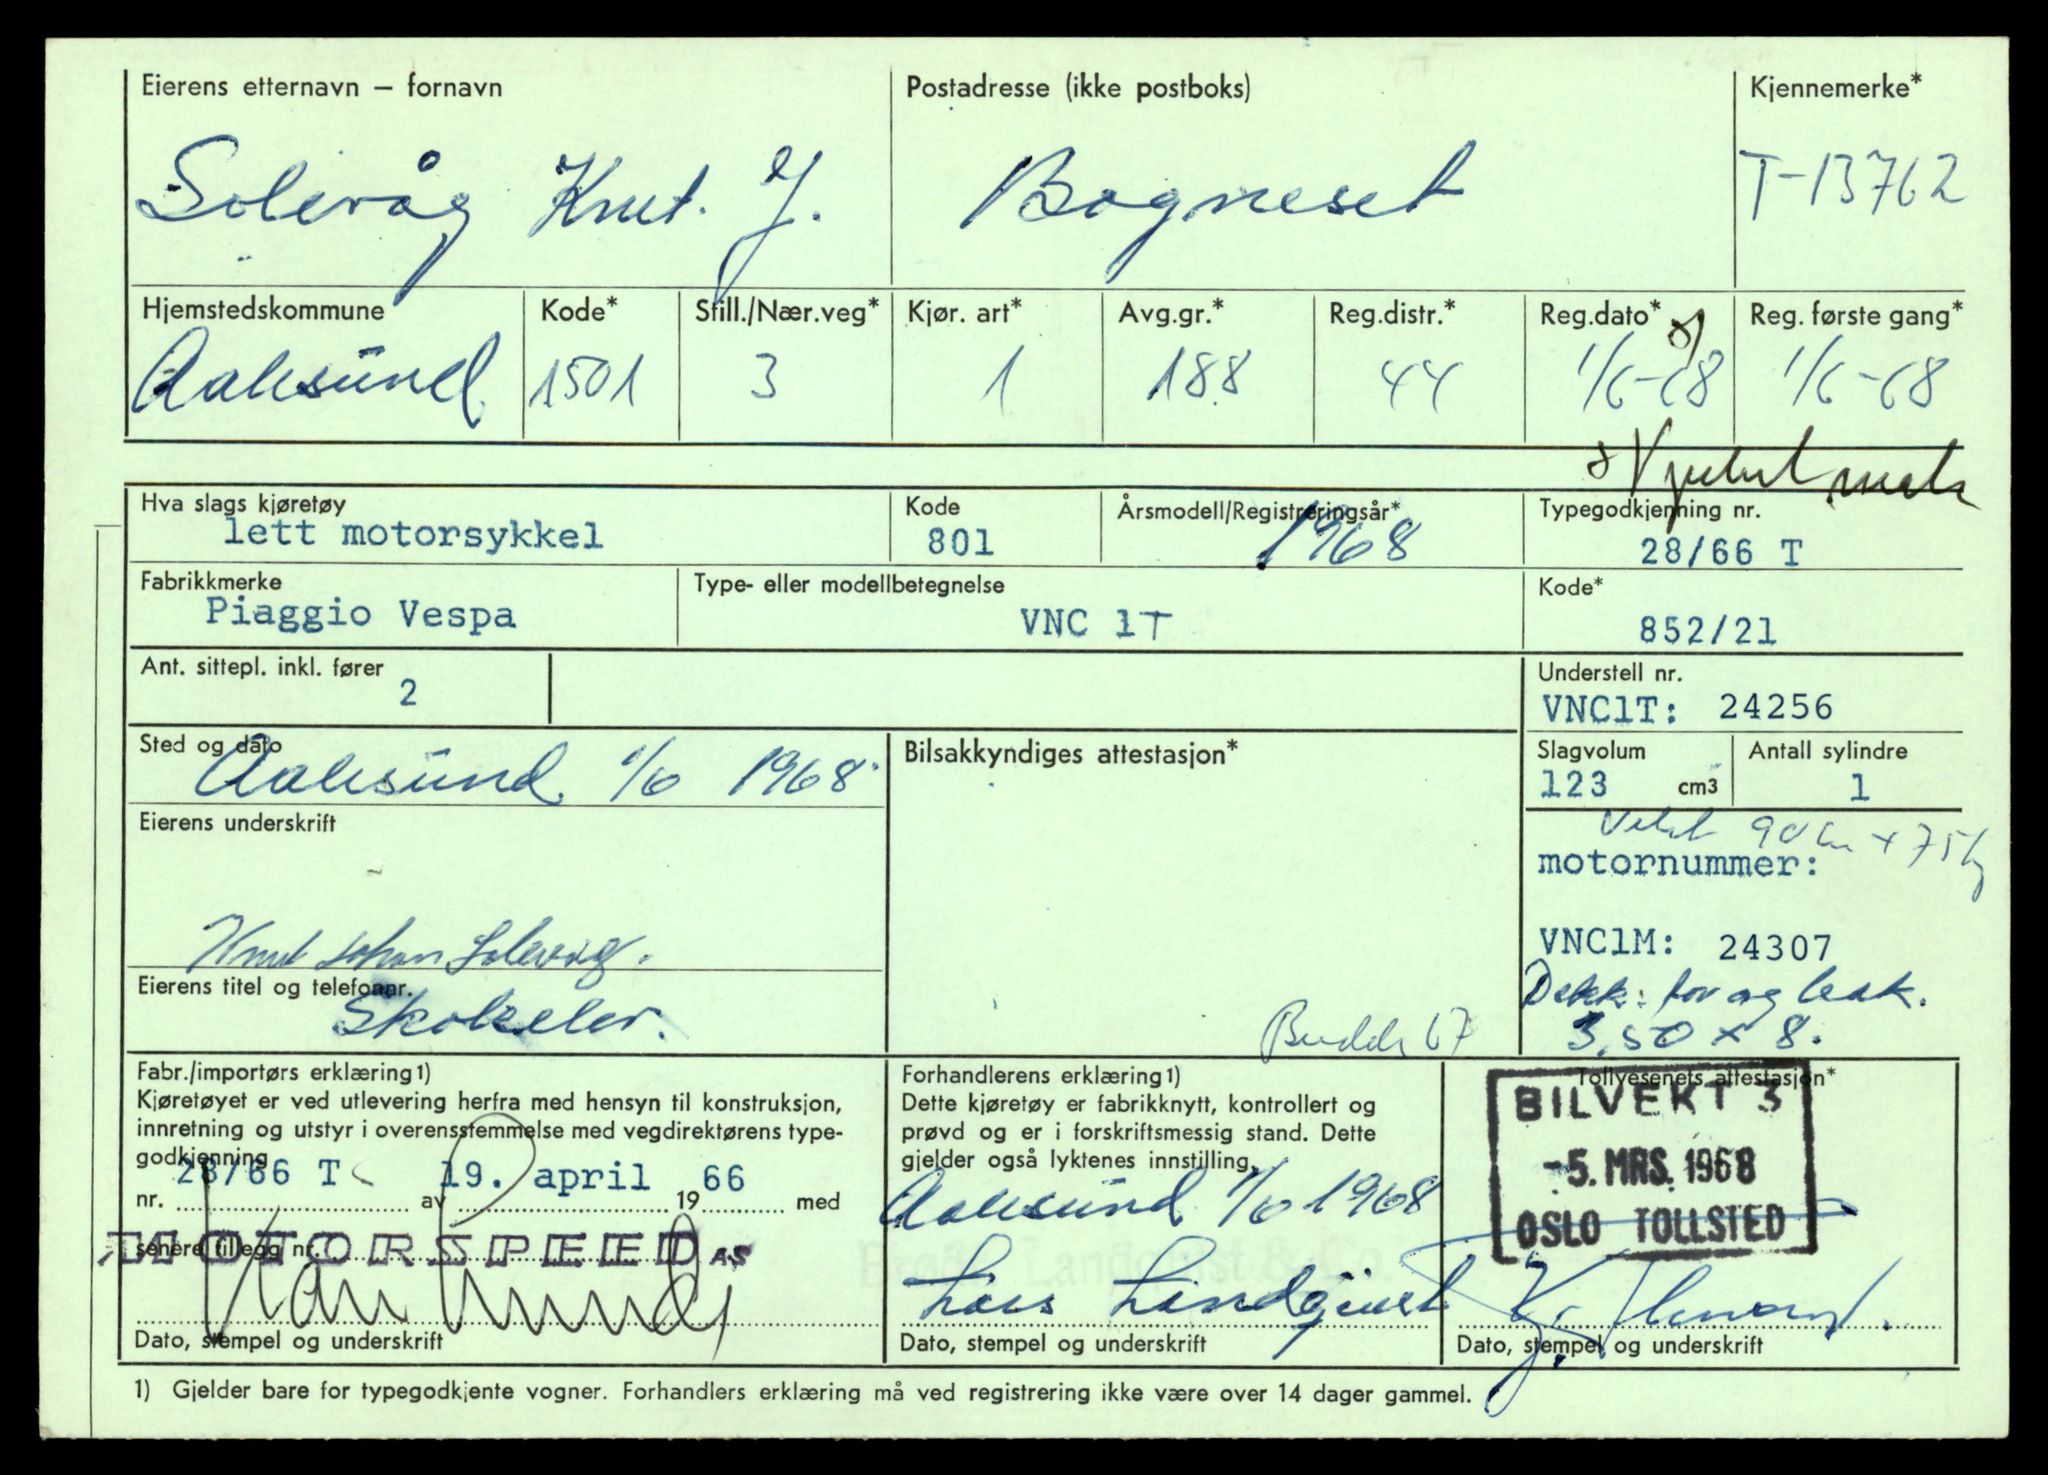 Eierens etternavn – fornavn Postadresse (ikke postboks) Kjennemerke*
Solevåg Knut. J. Bogneset T-13762
Hjemstedskommune Kode* Still./Nær.veg* Kjør. art* Avg.gr.* Reg.distr.* Reg.dato* Reg. første gang*
Aalesund 1501 3 1 188 44 1/6-68 1/6-68
Hva slags kjøretøy Kode Årsmodell/Registreringsår* Typegodkjenning nr.
lett motorsykkel 801 1968 28/66 T
Fabrikkmerke Type- eller modellbetegnelse Kode*
Piaggio Vespa VNC 1T 852/21
Ant. sittepl. inkl. fører Understell nr.
2 VNC1T: 24256
Sted og dato Bilsakkyndiges attestasjon* Slagvolum Antall sylindre
Aalesund 1/6 1968 123 cm3 1
Eierens underskrift
Vekt 90 + 75 kg
motornummer:
Knut Johan Solevåg. VNC1M: 24307
Eierens titel og telefonnr. Dekk: for og bak.
Skoleelev. 3,50 x 8.
67
Fabr./importørs erklæring1) Forhandlerens erklæring1) Tollvesenets attestasjon*
Kjøretøyet er ved utlevering herfra med hensyn til konstruksjon,
innretning og utstyr i overensstemmelse med vegdirektørens type-
godkjenning
nr. 28/66 T av 19. april 19 66 med
senere tillegg nr.
MOTORSPEED AS
Dato, stempel og underskrift
Dette kjøretøy er fabrikknytt, kontrollert og
prøvd og er i forskriftsmessig stand. Dette
gjelder også lyktenes innstilling.
Aalesund 1/6 1968
Lars Landquist
Dato, stempel og underskrift
BILVEKT 3
-5. MRS. 1968
OSLO TOLLSTED
Dato, stempel og underskrift
1) Gjelder bare for typegodkjente vogner. Forhandlers erklæring må ved registrering ikke være over 14 dager gammel.